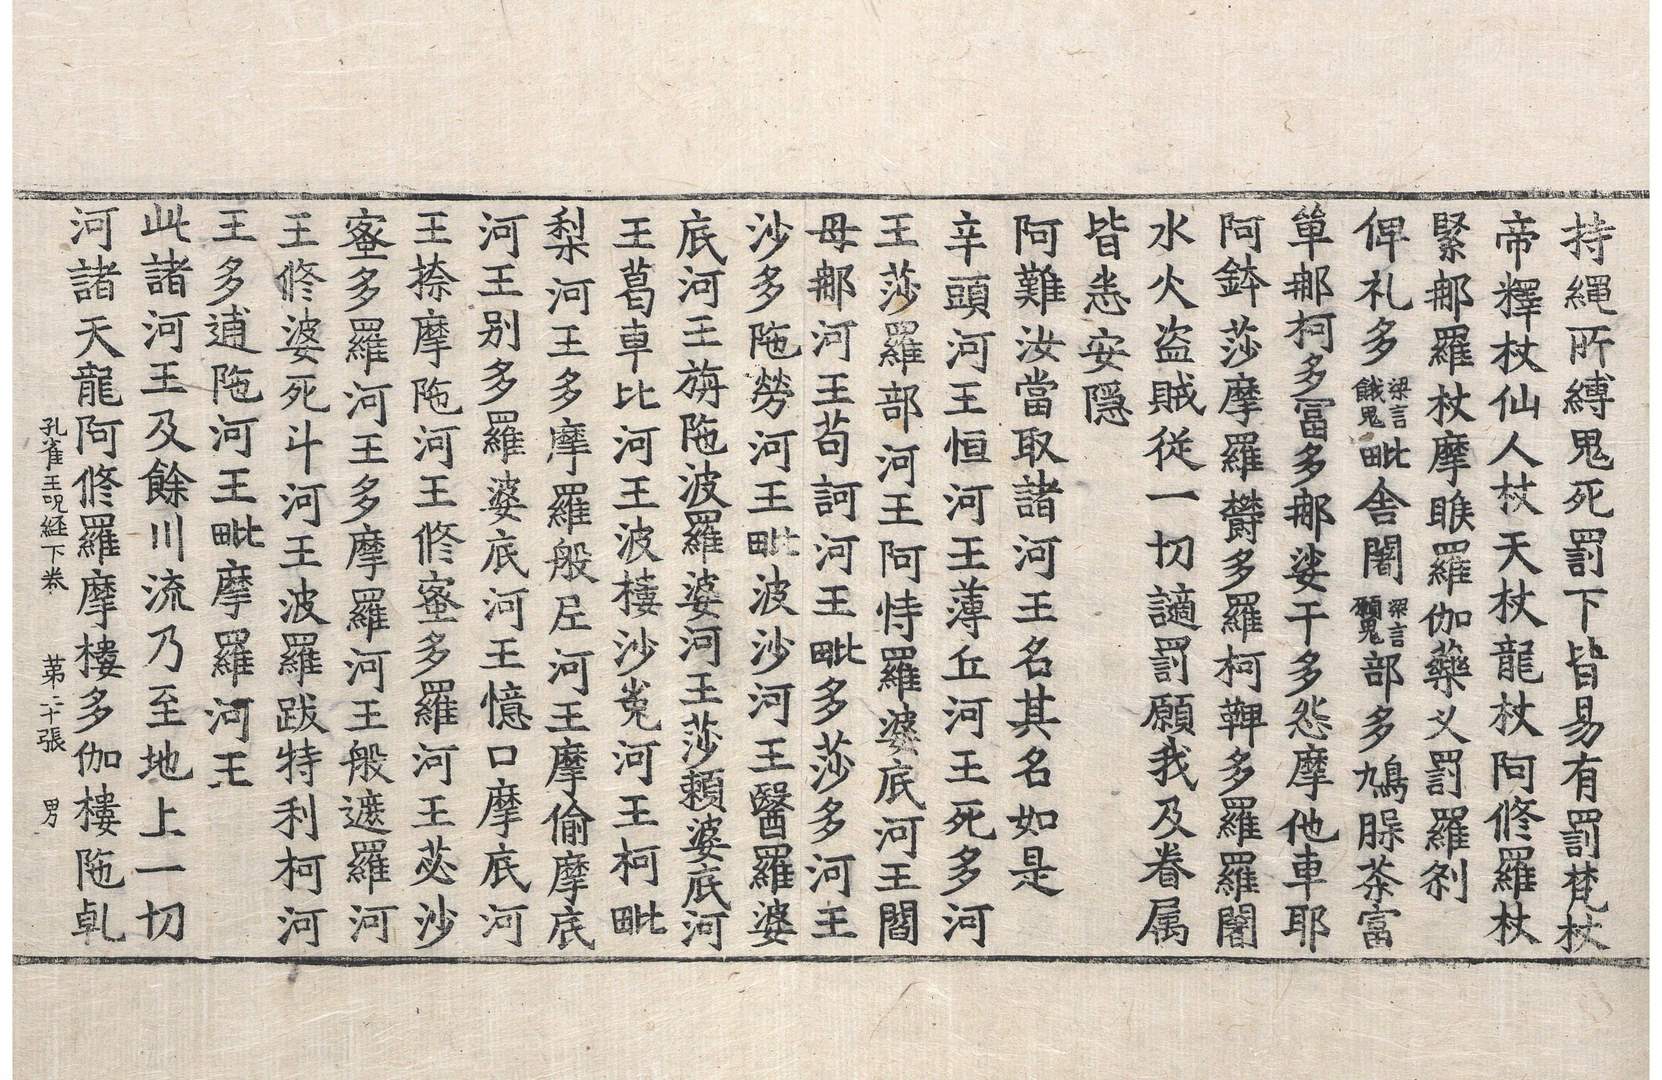 持繩所縛鬼死罰下皆易有罰梵杖
帝釋杖仙人杖天杖龍杖阿修羅杖
緊那羅杖摩睺羅伽藥叉罰羅刹
俾礼多梁言餓鬼毗舍闍梁言顛鬼部多鳩脲茶富
單那柯多富多那娑干多怨摩他車耶
阿鉢莎摩羅欝多羅柯鞞多羅羅闍
水火盗賊従一切讁罰願我及眷属
皆悉安隱
阿難汝當取諸河王名其名如是
辛頭河王恒河王薄丘河王死多河
王莎羅部河王阿恃羅婆底河王閻
母那河王苟訶河王毗多莎多河王
沙多陁勞河王毗波沙河王醫羅婆
底河王旃陁波羅婆河王莎賴婆底河
王葛車比河王波樓沙嵬河王柯毗
梨河王多摩羅般尼河王摩偷摩底
河王别多羅婆底河王憶口摩底河
王捺摩陁河王修蜜多羅河王苾沙
蜜多羅河王多摩羅河王般遮羅河
王修婆死斗河王波羅跋特利柯河
王多逋陁河王毗摩羅河王
此諸河王及餘川流乃至地上一切
河諸天龍阿修羅摩樓多伽樓陁乹
孔雀王呪経下卷 苐二十張 男